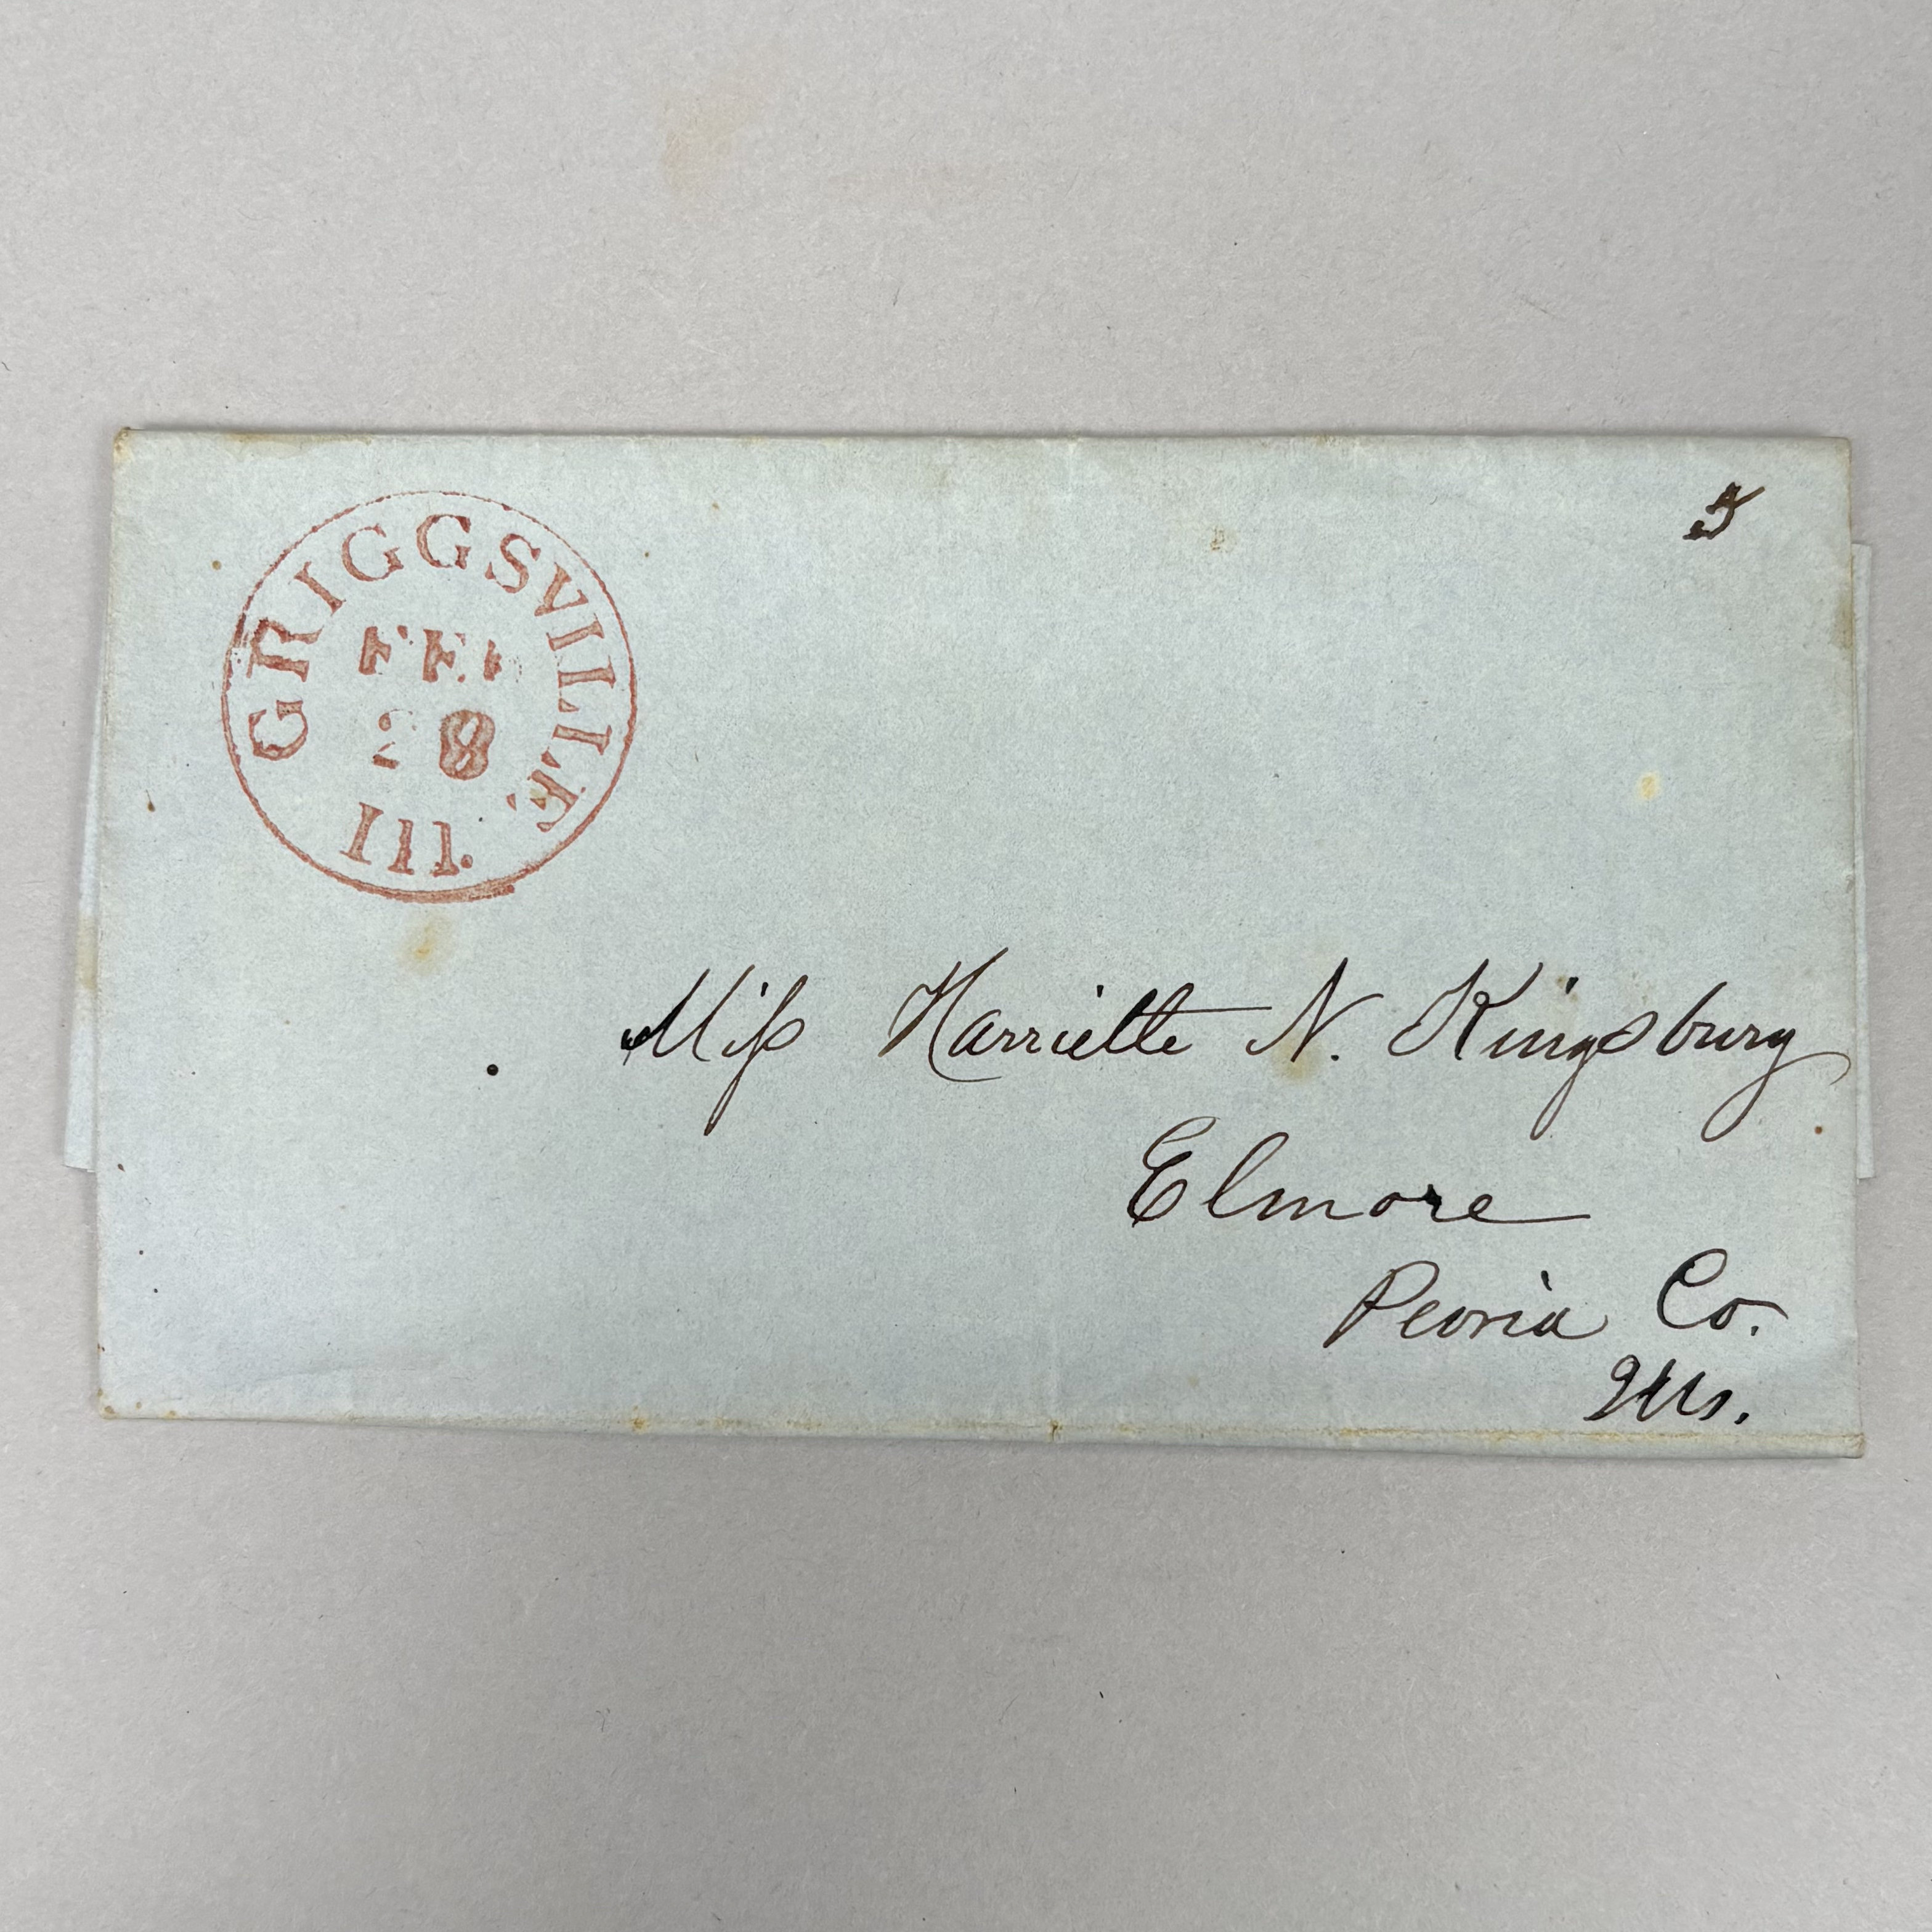 GRIGGSVILLE
FEB
28
Ill.
5
Miſs Harriette N. Kingsbury
Elmore
Peoria Co.
Ills.